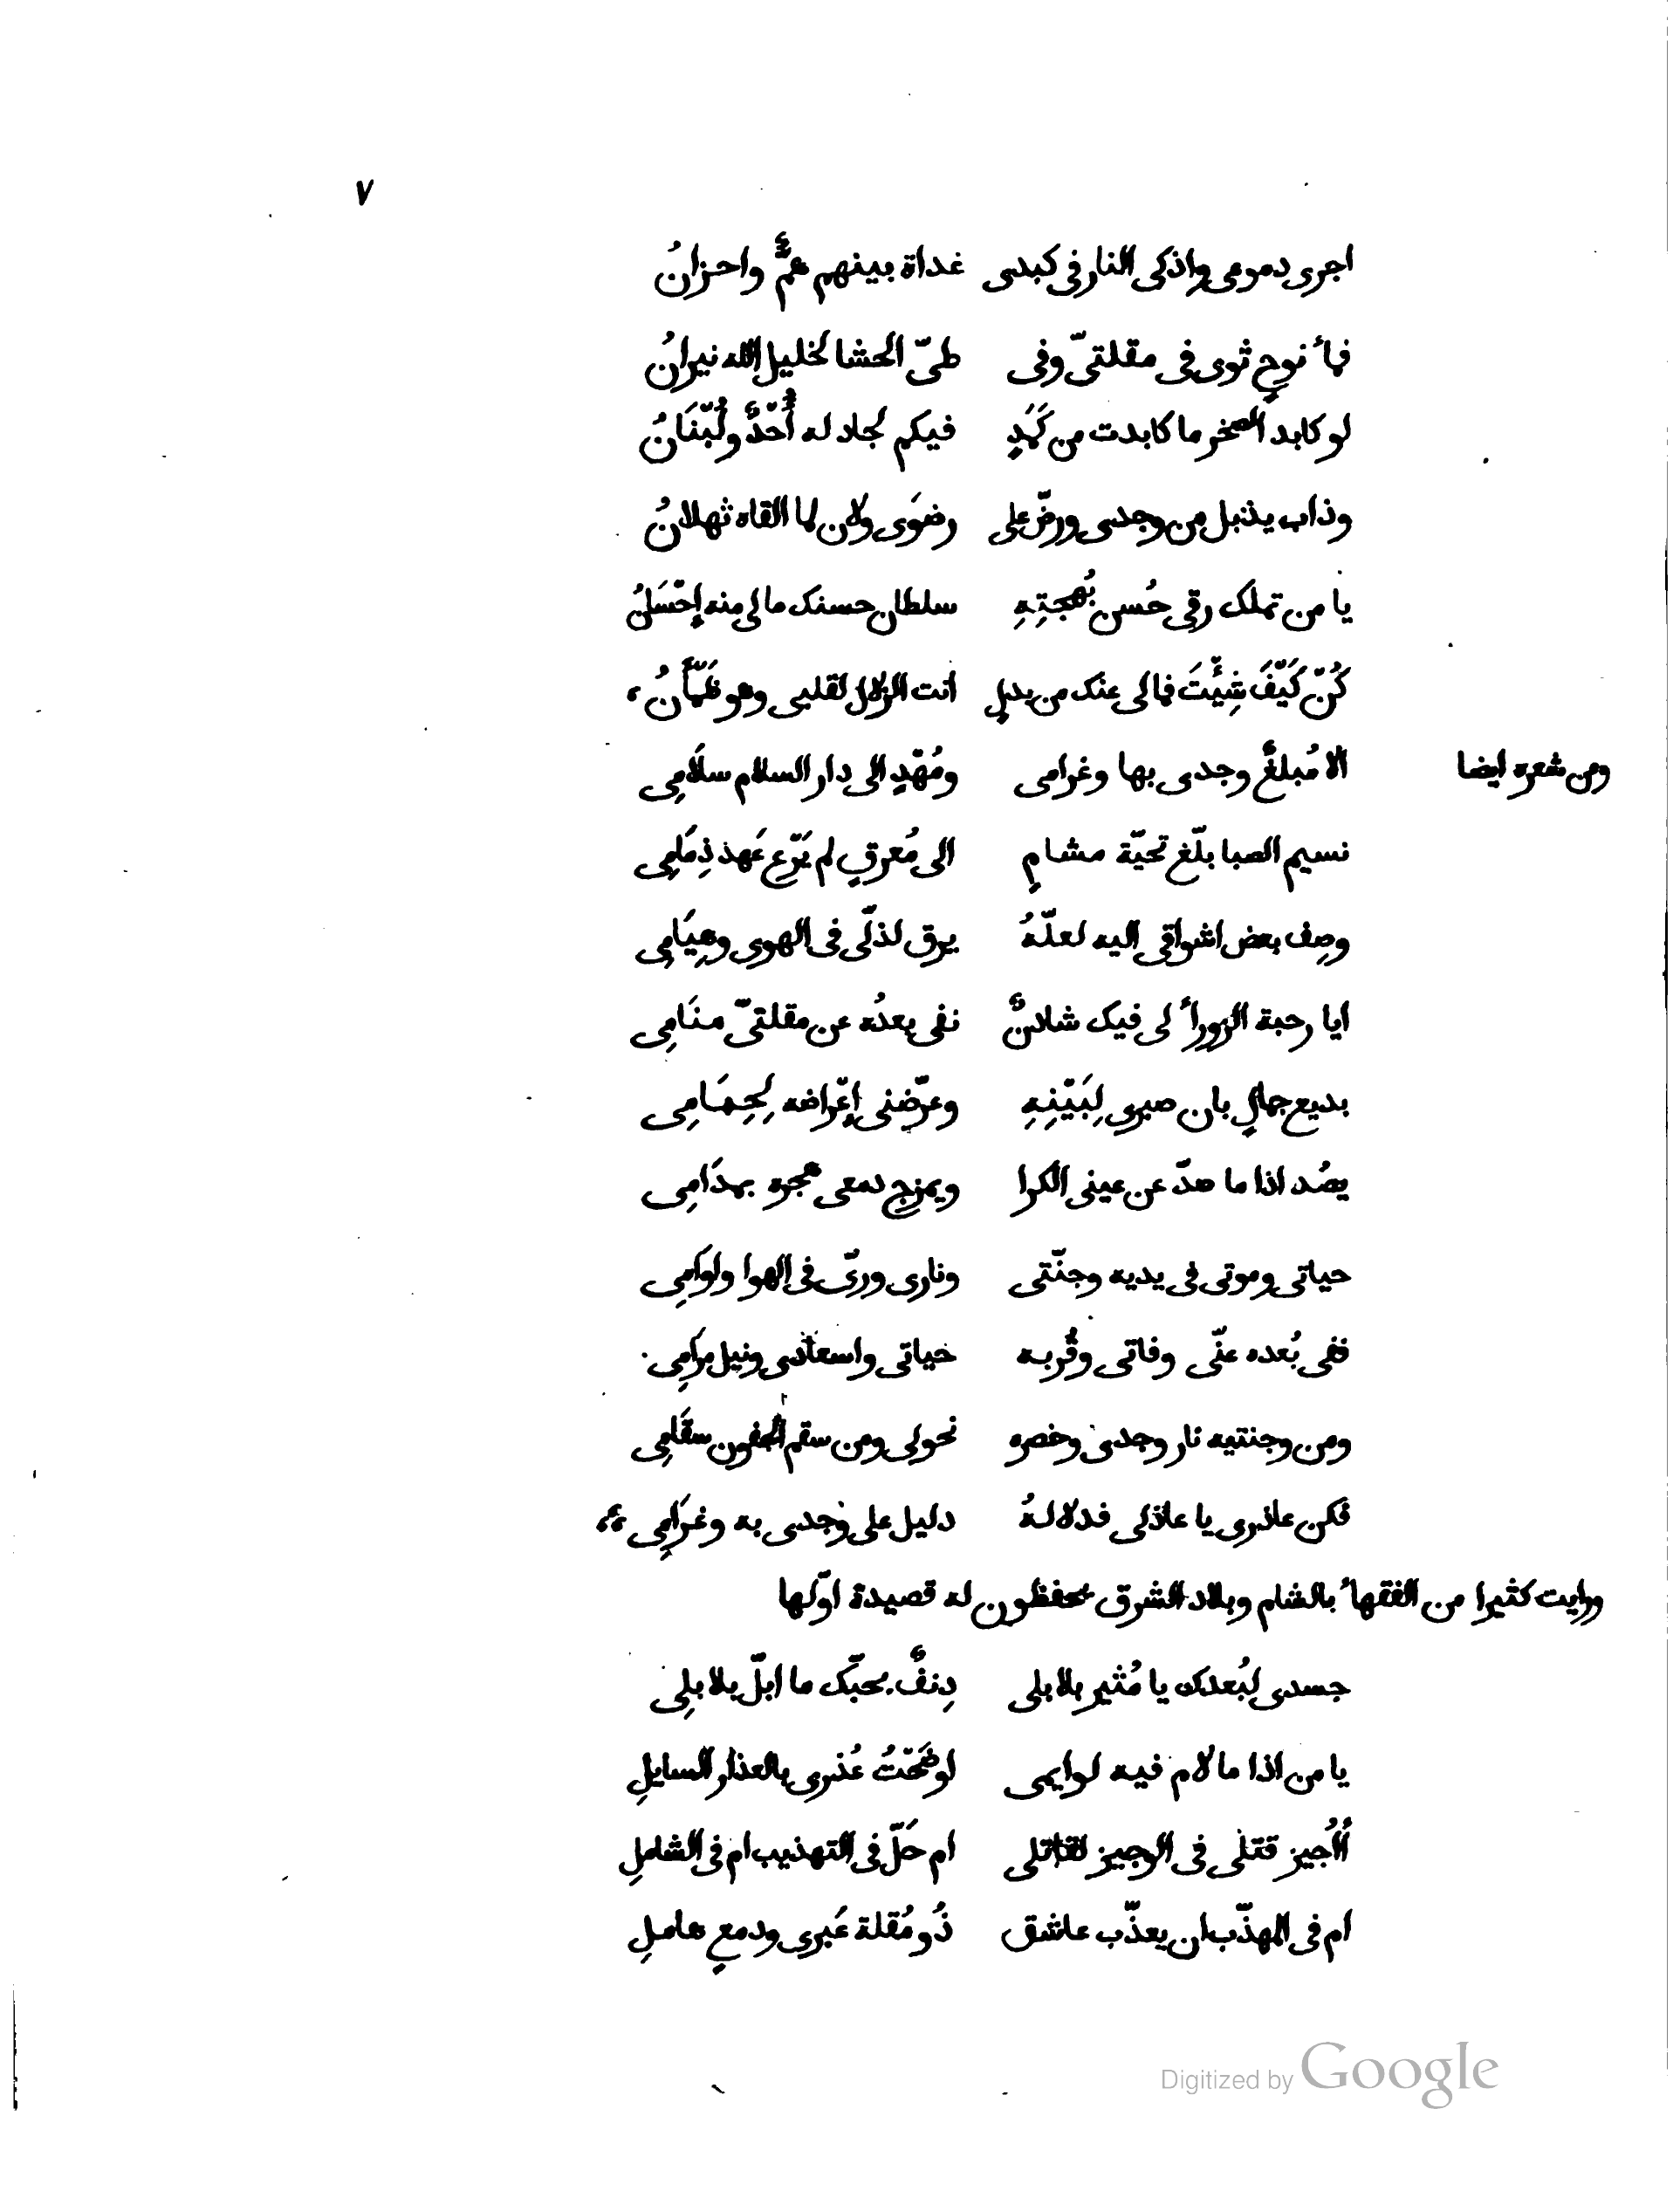 ٧
اجرى دموعى واذكى النار فى كبدى غداة بينهم همٌّ واحزانُ
فمأ نوحٍ ثوى فى مقلتىّ وفى طىّ الحشا لخليل الله نيرانُ
لو كابد الصخر ما كابدت من كَمَدٍ فيكم لجاد له أُحْدٌ ولُبْنَانُ
وذاب يذبل من وجدى ورضّ على رضوَى ولان لما القاه ثهلانُ
يا من تملك رقى حُسن بُهجتِهِ سلطان حسنك مالى منه إِحْسَانُ
كُنْ كَيْفَ شِئْتَ فمالى عنك من بدلٍ انت الزلال لقلبى وهو ظَمْأَنُ
ومن شعره ايضا الا مُبلغٌ وجدى بها وغرامى ومُهْدٍ الى دار السلام سلَامِى
نسيم الصبا بلّغ تحيّة مشامٍ الى مُعرقٍ لم يَرْعِ عَهد ذِمَامِى
وصِف بعض اشواقى اليه لعلّهُ يرق لذلّى فى الهوى وهِيَامِى
ايا رحبة الزورأ لى فيك شادنٌ نفى بعدُه عن مقلتىّ منَامِى
بديع جمالٍ بان صبرى لِبَيْنِهِ وعرّضنى إِعْراضه لِحِمَامِى
يصُد اذا ما صدّ عن عينى الكرا ويمزج دمعى هجره بمدَامِى
حياتى وموتى فى يديه وجنّتى ونارى وريّى فى الهوا واوَامِى
ففى بُعده عنّى وفاتى وقُربه حياتى واسعادى ونيل مرَامِى
ومن وجنتيه نار وجدى وخصره نحولى ومن سقم الجفون سقَامِى
فكن عاذرى يا عاذلى فدلالهُ دليل على وجدى به وغرَامِى
ورايت كثيرا من الفقهأ بالشام وبلاد الشرق يحفظون له قصيدة اوّلها
جسدى لبُعدك يا مُثير بلابلى دِنفٌ بحبّك ما ابلّ بلابلِى
يا من اذا ما لام فيه لوايمى اوضَحْتُ عُذرى بالعذار السايلِ
أأُجيز قتلى فى الوجيز لقاتلى ام حَلّ فى التهذيب ام فى الشاملِ
ام فى المهذّب ان يعذّب عاشق ذُو مُقلة عَبرى ودمعٍ هاملِ
Digitized by Google